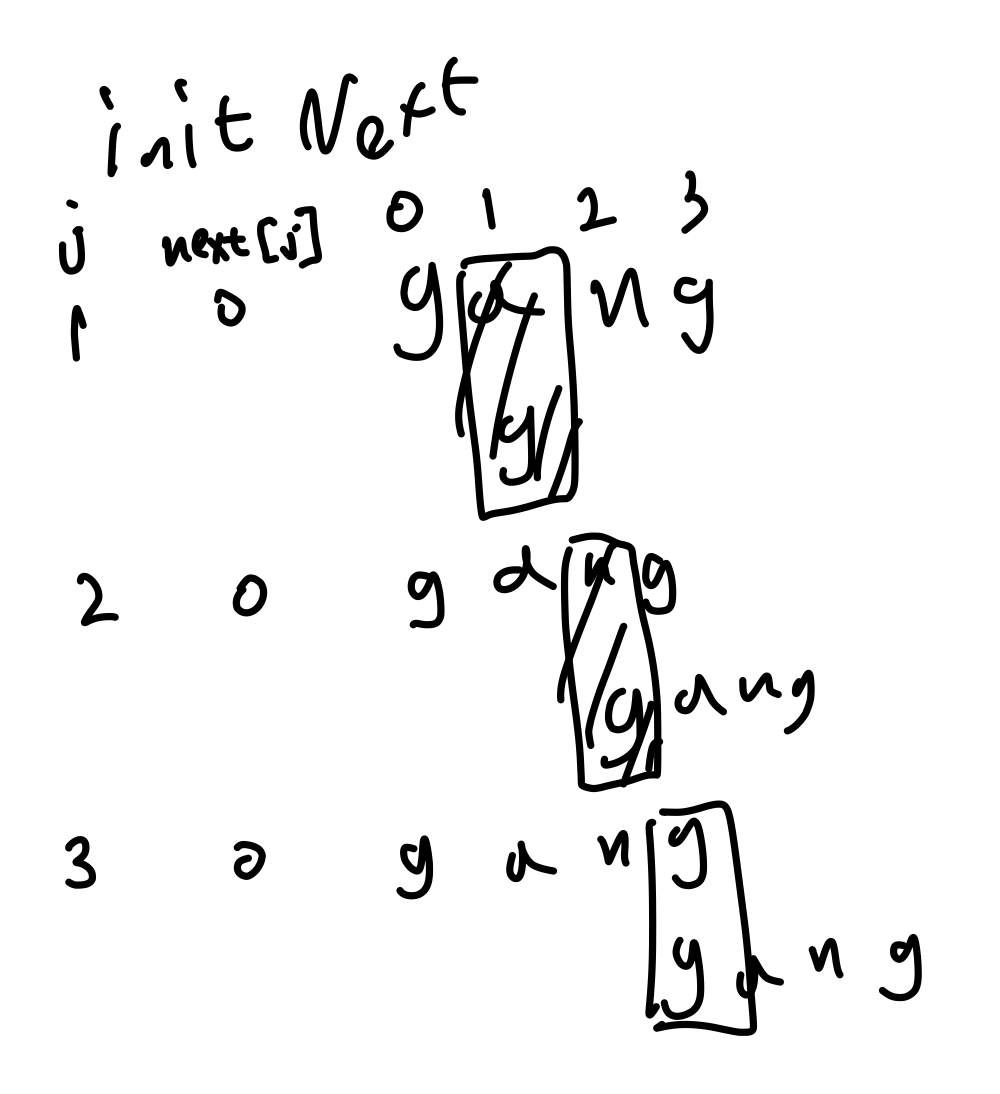 init Next
j next[j] 0 1 2 3
1 0 g a n g
g
2 0 g a n g
g a n g
3 0 g a n g
g a n g